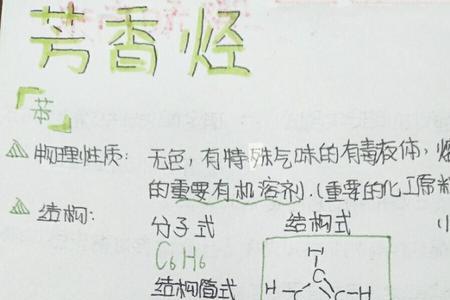 芳香烃
「苯」
物理性质: 无色,有特殊气味的有毒液体,
的重要有机溶剂.(重要的化工原料
结构: 分子式 结构式
C6H6
H
结构简式 H C C H